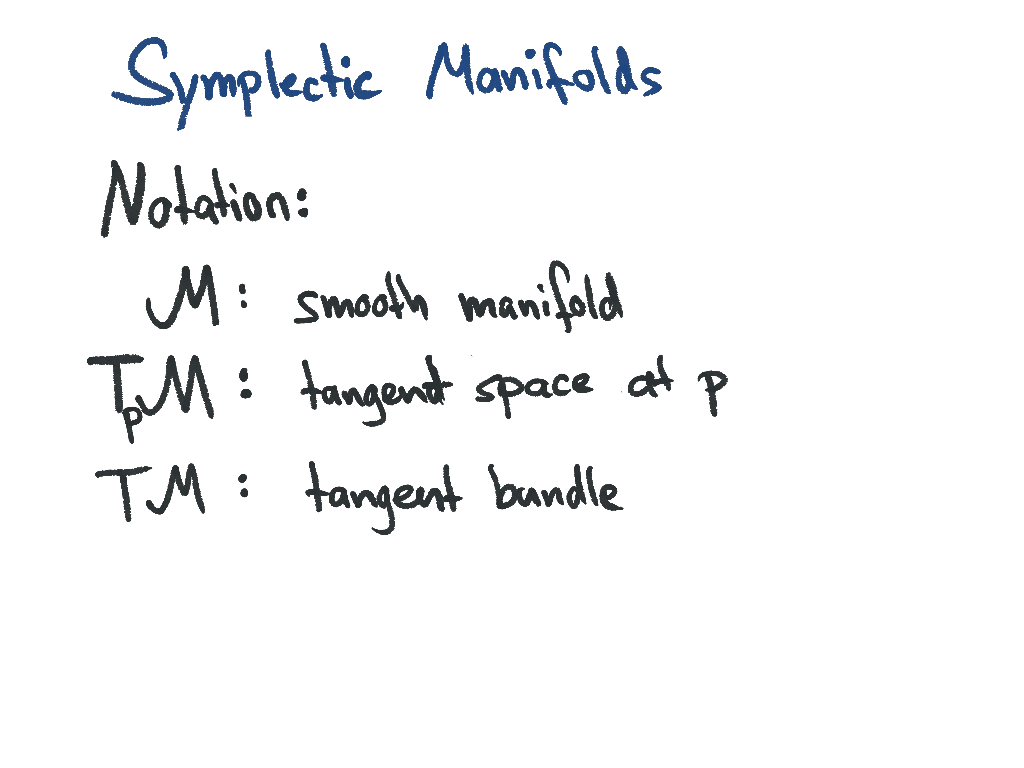 Symplectic Manifolds
Notation:
M: smooth manifold
TₚM: tangent space at p
TM: tangent bundle